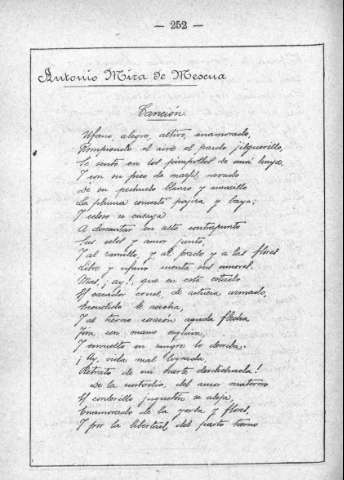 — 252 —
Antonio Mira de Mescua
Canción
Ufano, alegre, altivo, enamorado,
Rompiendo el aire el pardo jilguerillo,
Se sentó en los pimpollos de una haya,
Y con su pico de marfil nevado
De su pechuelo blanco y amarillo
La pluma concertó pajiza y baya;
Y celoso se ensaya
A discantar en alto contrapunto
Sus celos y amor junto,
Y al ramillo, y al prado y a las flores
Libre y ufano cuenta sus amores.
Mas, ¡ay!, que en este estado
El cazador cruel, de astucia armado,
Escondido le acecha,
Y al tierno corazón aguda flecha
Tira con mano esquiva,
Y envuelto en sangre lo derriba.
¡Ay, vida mal lograda,
Retrato de mi suerte desdichada!
De la custodia del amor materno
El corderillo juguetón se aleja,
Enamorado de la yerba y flores,
Y por la libertad del pasto tierno